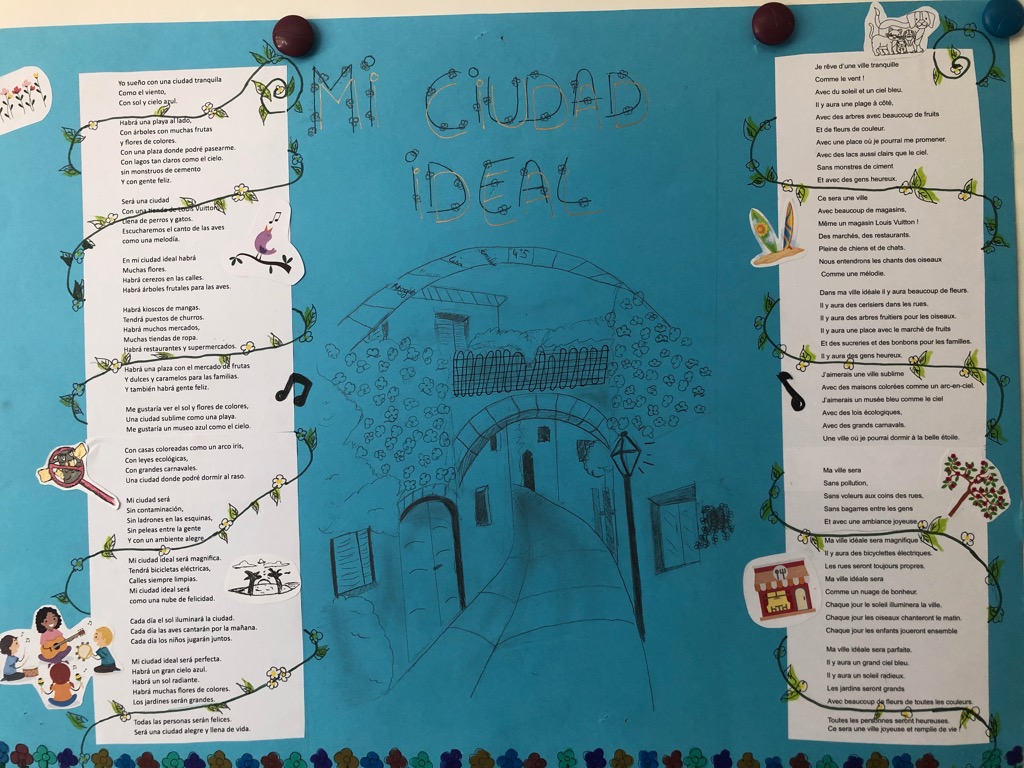 MI CIUDAD
IDEAL
Yo sueño con una ciudad tranquila
Como el viento,
Con sol y cielo azul.
Habrá una playa al lado,
Con árboles con muchas frutas
y flores de colores.
Con una plaza donde podré pasearme.
Con lagos tan claros como el cielo.
sin monstruos de cemento
Y con gente feliz.
Será una ciudad
Con una tienda de Louis Vuitton,
Llena de perros y gatos.
Escucharemos el canto de las aves
como una melodía.
En mi ciudad ideal habrá
Muchas flores.
Habrá cerezos en las calles.
Habrá árboles frutales para las aves.
Habrá kioscos de mangas.
Tendrá puestos de churros.
Habrá muchos mercados,
Muchas tiendas de ropa.
Habrá restaurantes y supermercados.
Habrá una plaza con el mercado de frutas
Y dulces y caramelos para las familias.
Y también habrá gente feliz.
Me gustaría ver el sol y flores de colores,
Una ciudad sublime como una playa.
Me gustaría un museo azul como el cielo.
Con casas coloreadas como un arco iris,
Con leyes ecológicas,
Con grandes carnavales.
Una ciudad donde podré dormir al raso.
Mi ciudad será
Sin contaminación,
Sin ladrones en las esquinas,
Sin peleas entre la gente
Y con un ambiente alegre
Mi ciudad ideal será magnífica.
Tendrá bicicletas eléctricas,
Calles siempre limpias.
Mi ciudad ideal será
como una nube de felicidad.
Cada día el sol iluminará la ciudad.
Cada día las aves cantarán por la mañana.
Cada día los niños jugarán juntos.
Mi ciudad ideal será perfecta.
Habrá un gran cielo azul.
Habrá un sol radiante.
Habrá muchas flores de colores.
Los jardines serán grandes.
Todas las personas serán felices.
Será una ciudad alegre y llena de vida.
4°5
Je rêve d'une ville tranquille
Comme le vent !
Avec du soleil et un ciel bleu.
Il y aura une plage à côté,
Avec des arbres avec beaucoup de fruits
Et de fleurs de couleur.
Avec une place où je pourrai me promener.
Avec des lacs aussi clairs que le ciel.
Sans monstres de ciment
Et avec des gens heureux.
Ce sera une ville
Avec beaucoup de magasins,
Même un magasin Louis Vuitton !
Des marchés, des restaurants.
Pleine de chiens et de chats.
Nous entendrons les chants des oiseaux
Comme une mélodie.
Dans ma ville idéale il y aura beaucoup de fleurs.
Il y aura des cerisiers dans les rues.
Il y aura des arbres fruitiers pour les oiseaux.
Il y aura une place avec le marché de fruits
Et des sucreries et des bonbons pour les familles.
Il y aura des gens heureux.
J'aimerais une ville sublime
Avec des maisons colorées comme un arc-en-ciel.
J'aimerais un musée bleu comme le ciel
Avec des lois écologiques,
Avec des grands carnavals.
Une ville où je pourrai dormir à la belle étoile.
Ma ville sera
Sans pollution,
Sans voleurs aux coins des rues,
Sans bagarres entre les gens
Et avec une ambiance joyeuse
Ma ville idéale sera magnifique
Il y aura des bicyclettes électriques.
Les rues seront toujours propres.
Ma ville idéale sera
Comme un nuage de bonheur.
Chaque jour le soleil illuminera la ville.
Chaque jour les oiseaux chanteront le matin.
Chaque jour les enfants joueront ensemble
Ma ville idéale sera parfaite.
Il y aura un grand ciel bleu.
Il y aura un soleil radieux.
Les jardins seront grands
Avec beaucoup de fleurs de toutes les couleurs.
Toutes les personnes seront heureuses.
Ce sera une ville joyeuse et remplie de vie !